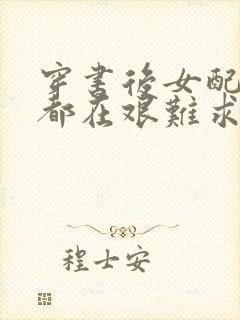 穿書後女配
都在艱難求
程士安